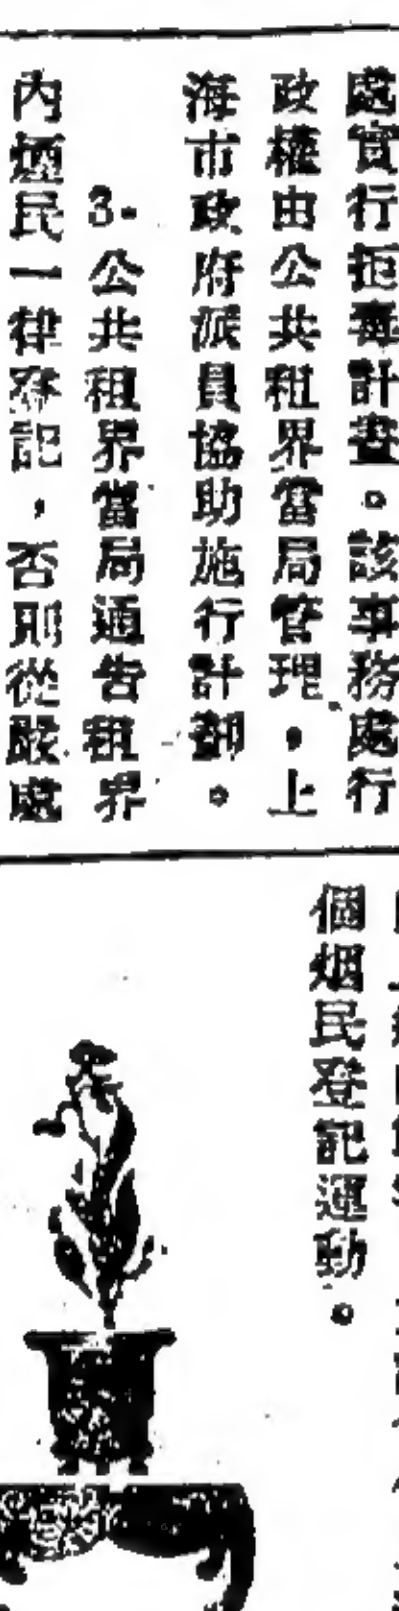 處實行拒毒計畫。該事務處行
政權由公共租界當局管理，上
海市政府派員協助施行計劃。
3.公共租界當局通告租界
內煙民一律登記，否則從嚴處
個烟民登記運動。